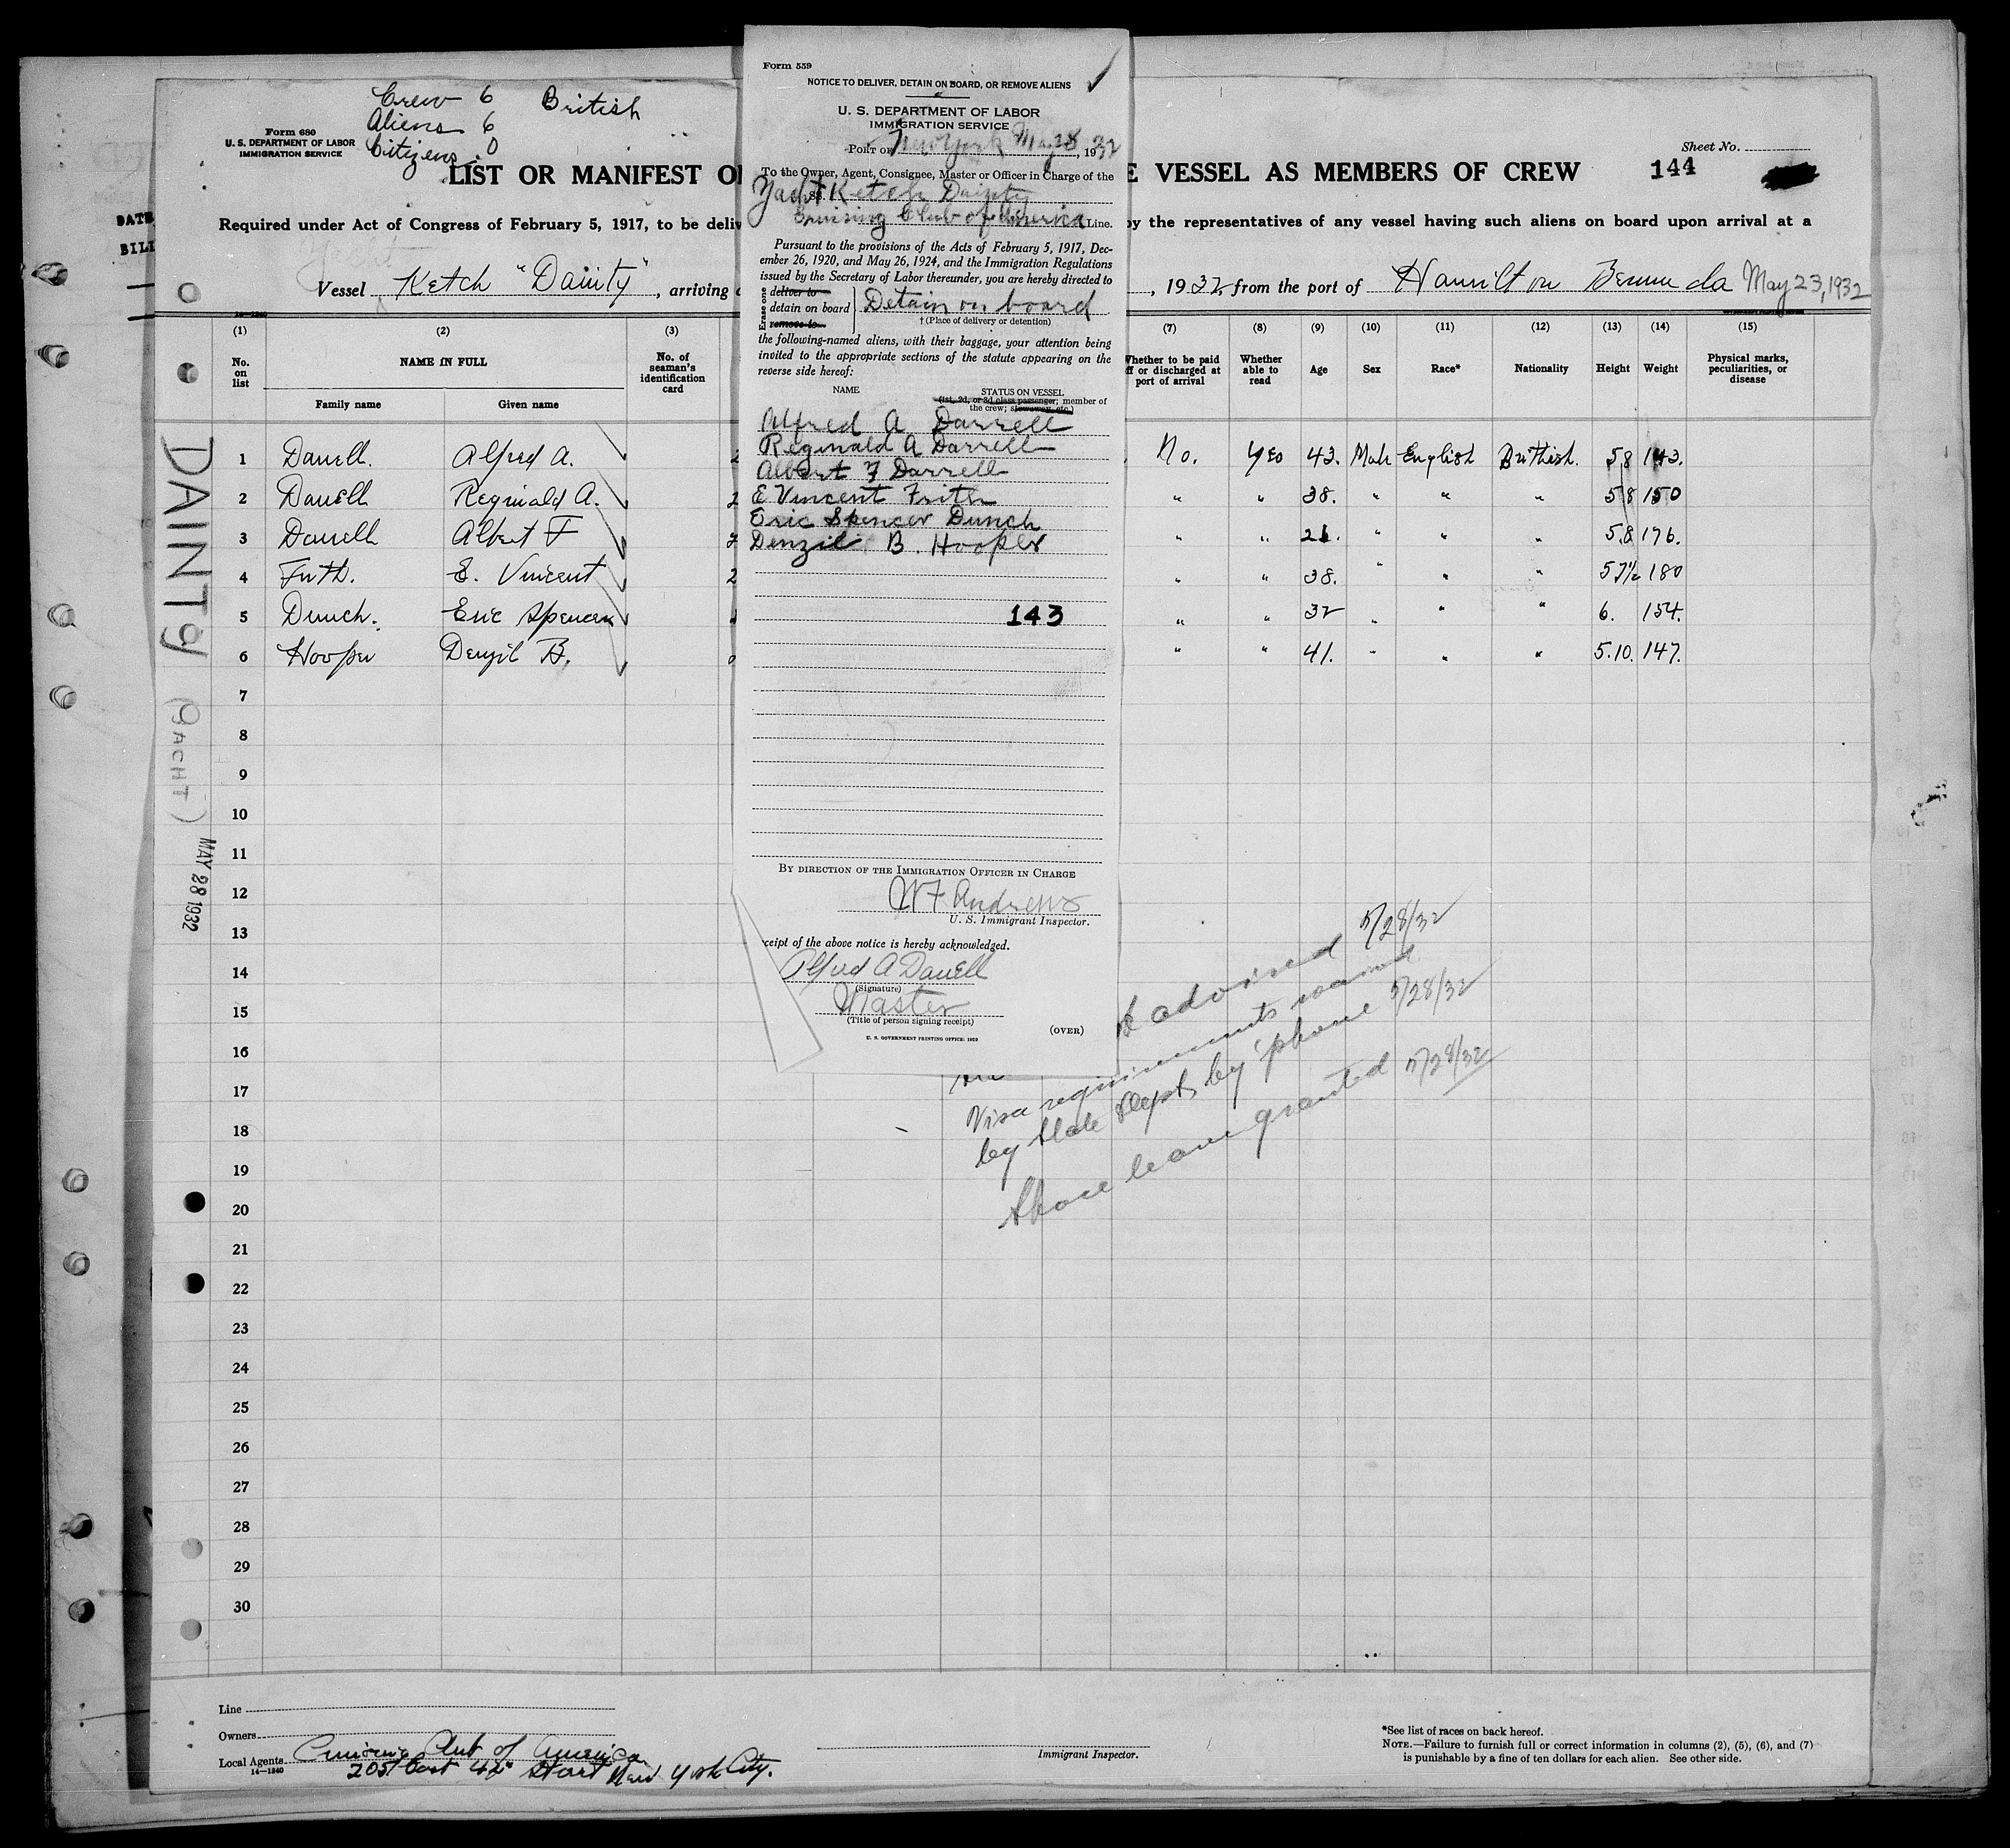 Crew 6 British
Aliens 6
Citizens 0
Form 680
U. S. DEPARTMENT OF LABOR
IMMIGRATION SERVICE
Sheet No.
LIST OR MANIFEST O
E VESSEL AS MEMBERS OF CREW 144
DATE
BILL
Required under Act of Congress of February 5, 1917, to be deliv
by the representatives of any vessel having such aliens on board upon arrival at a
Vessel Ketch "Dainty", arriving
, 1932, from the port of Hamilton Bermuda May 23, 1932
(1) (2) (3) (7) (8) (9) (10) (11) (12) (13) (14) (15)
No. on list
NAME IN FULL
Family name Given name
No. of seaman's identification card
Whether to be paid off or discharged at port of arrival
Whether able to read
Age Sex Race* Nationality Height Weight
Physical marks, peculiarities, or disease
1 Darrell. Alfred A. No. Yes 43. Male English British. 5 8 143.
2 Darrell Reginald A. " " 38. " " " 5 8 150
3 Darrell Albert F " " 21. " " " 5.8 176.
4 Frith. E. Vincent " " 38. " " " 5 7½ 180
5 Dunch. Eric Spencer " " 32 " " " 6. 154.
6 Hooper Denzil B. " " 41. " " " 5.10. 147.
7
8
9
10
11
12
13
14
15
16
17
18
19
20
21
22
23
24
25
26
27
28
29
30
DAINTY (YACHT) MAY 28 1932
Form 559
NOTICE TO DELIVER, DETAIN ON BOARD, OR REMOVE ALIENS
U. S. DEPARTMENT OF LABOR
IMMIGRATION SERVICE
PORT OF New York May 28, 1932
To the Owner, Agent, Consignee, Master or Officer in Charge of the
Yacht Ketch Dainty
Cruising Club of America Line.
Pursuant to the provisions of the Acts of February 5, 1917, Dec-
ember 26, 1920, and May 26, 1924, and the Immigration Regulations
issued by the Secretary of Labor thereunder, you are hereby directed to
Erase one
deliver to
detain on board
remove to
Detain on board
† (Place of delivery or detention)
the following-named aliens, with their baggage, your attention being
invited to the appropriate sections of the statute appearing on the
reverse side hereof:
NAME STATUS ON VESSEL
(1st, 2d, or 3d class passenger; member of
the crew; stowaway, etc.)
Alfred A Darrell
Reginald A Darrell
Albert F Darrell
E Vincent Frith
Eric Spencer Dunch
Denzil B. Hooper
143
BY DIRECTION OF THE IMMIGRATION OFFICER IN CHARGE
W F Andrews
U. S. Immigrant Inspector.
ceipt of the above notice is hereby acknowledged.
Alfred A Darrell
(Signature)
Master
(Title of person signing receipt)
(OVER)
U. S. GOVERNMENT PRINTING OFFICE: 1929
advised 5/28/32
Visa requirements waived
by State Dept. by 'phone 5/28/32
Shore leave granted 5/28/32
Line
Owners
Local Agents Cruising Club of America
14—1240
205 East 42" Street New York City.
Immigrant Inspector.
*See list of races on back hereof.
NOTE.—Failure to furnish full or correct information in columns (2), (5), (6), and (7)
is punishable by a fine of ten dollars for each alien. See other side.